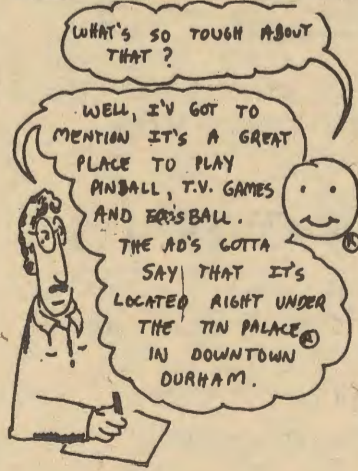 WHAT'S SO TOUGH ABOUT
THAT?
WELL, I'V GOT TO
MENTION IT'S A GREAT
PLACE TO PLAY
PINBALL, T.V. GAMES
AND BALL.
THE AD'S GOTTA
SAY THAT IT'S
LOCATED RIGHT UNDER
THE TIN PALACE
IN DOWNTOWN
DURHAM.